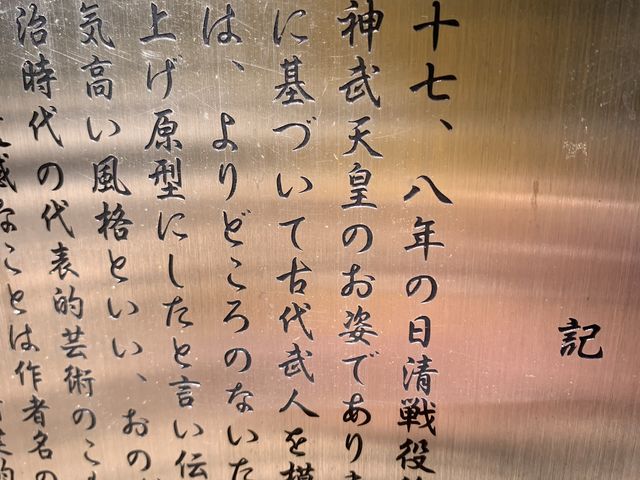 記
十七、八年の日清戦役
神武天皇のお姿であり
に基づいて古代武人を模
は、よりどころのないた
上げ原型にしたと言い伝
気高い風格といい、おの
治時代の代表的芸術のこ
なことは作者名の